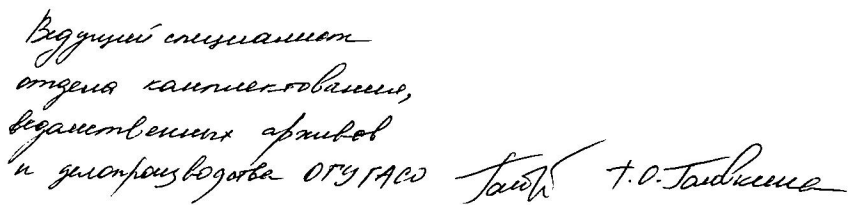 Ведущий специалист
отдела комплектования,
ведомственных архивов
и делопроизводства ОГУ ГАСО Т.О. Головкина